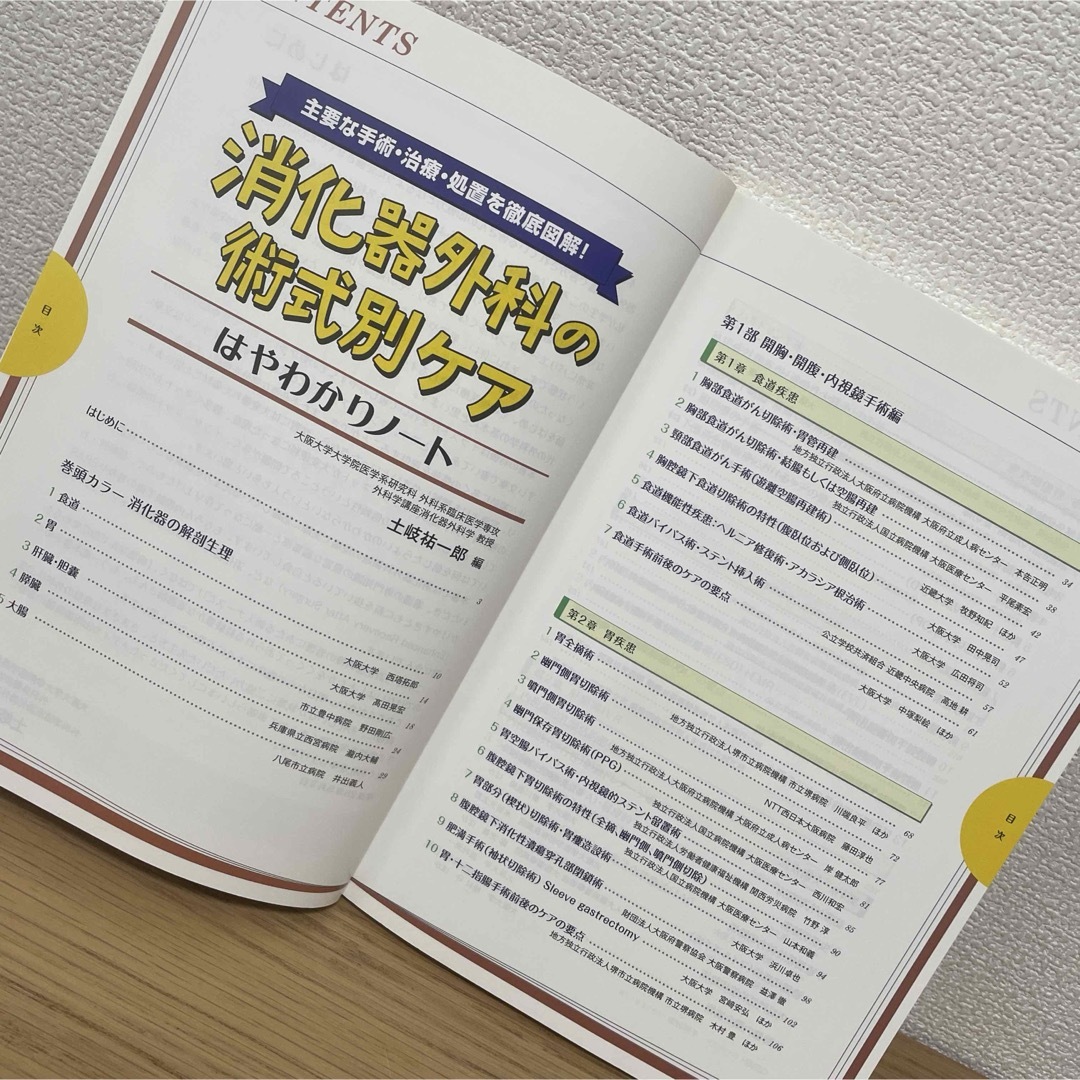 TENTS
主要な手術・治療・処置を徹底図解!
消化器外科の
術式別ケア
はやわかりノート
大阪大学大学院医学系研究科 外科系臨床医学専攻
外科学講座消化器外科学 教授
土岐祐一郎 編
目次
はじめに 3
巻頭カラー 消化器の解剖生理
1 食道 大阪大学 西塔拓郎 10
2 胃 大阪大学 高田晃宏 14
3 肝臓・胆嚢 市立豊中病院 野田剛広 18
4 膵臓 兵庫県立西宮病院 瀧内大輔 24
5 大腸 八尾市立病院 井出義人 29
第1部 開胸・開腹・内視鏡手術編
第1章 食道疾患
1 胸部食道がん切除術・胃管再建
地方独立行政法人大阪府立病院機構 大阪府立成人病センター 本告正明 34
2 胸部食道がん切除術・結腸もしくは空腸再建
独立行政法人国立病院機構 大阪医療センター 平尾素宏 38
3 頸部食道がん手術(遊離空腸再建術) 近畿大学 牧野知紀 ほか 42
4 胸腔鏡下食道切除術の特性(腹臥位および側臥位) 大阪大学 田中晃司 47
5 食道機能性疾患:ヘルニア修復術・アカラシア根治術 大阪大学 広田将司 52
6 食道バイパス術・ステント挿入術 公立学校共済組合 近畿中央病院 高地 耕 57
7 食道手術前後のケアの要点 大阪大学 中塚梨絵 ほか 61
第2章 胃疾患
1 胃全摘術 地方独立行政法人堺市立病院機構 市立堺病院 川端良平 ほか 68
2 幽門側胃切除術 NTT西日本大阪病院 藤田淳也 73
3 噴門側胃切除術
地方独立行政法人大阪府立病院機構 大阪府立成人病センター 岸 健太郎 77
4 幽門保存胃切除術(PPG)
独立行政法人国立病院機構 大阪医療センター 西川和宏 81
5 胃空腸バイパス術・内視鏡的ステント留置術
独立行政法人労働者健康福祉機構 関西労災病院 竹野 淳 85
6 腹腔鏡下胃切除術の特性(全摘、幽門側、噴門側切除)
独立行政法人国立病院機構 大阪医療センター 山本和義 90
7 胃部分(楔状)切除術・胃瘻造設術 大阪大学 浜川卓也 94
8 腹腔鏡下消化性潰瘍穿孔部閉鎖術
財団法人大阪府警察協会 大阪警察病院 益澤 徹 98
9 肥満手術(袖状切除術) Sleeve gastrectomy 大阪大学 宮崎安弘 ほか 102
10 胃・十二指腸手術前後のケアの要点
地方独立行政法人堺市立病院機構 市立堺病院 木村 豊 ほか 106
目次